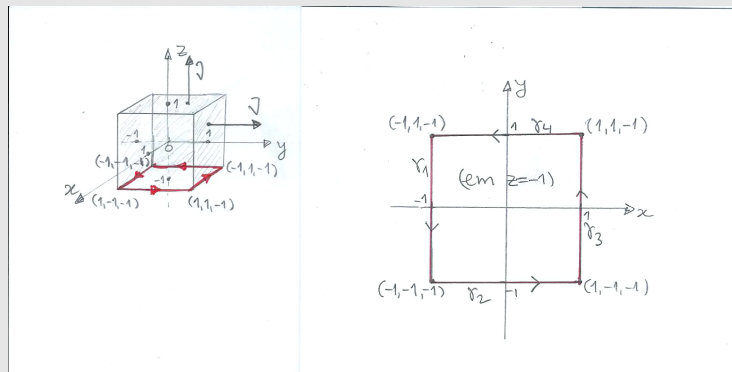 z
1
-1
1
1
0
y
(-1,-1,-1)
(-1,1,-1)
-1
x
(1,-1,-1)
(1,1,-1)
y
(-1,1,-1)
1
γ4
(1,1,-1)
γ1
(em z=-1)
-1
1
x
γ3
(-1,-1,-1)
γ2
-1
(1,-1,-1)